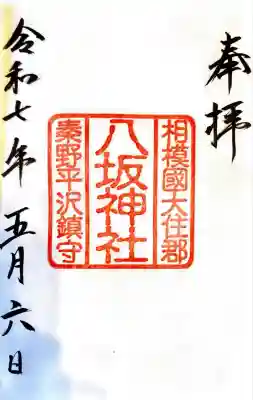 奉拝
相模國大住郡
八坂神社
秦野平沢鎮守
令和七年 五月六日